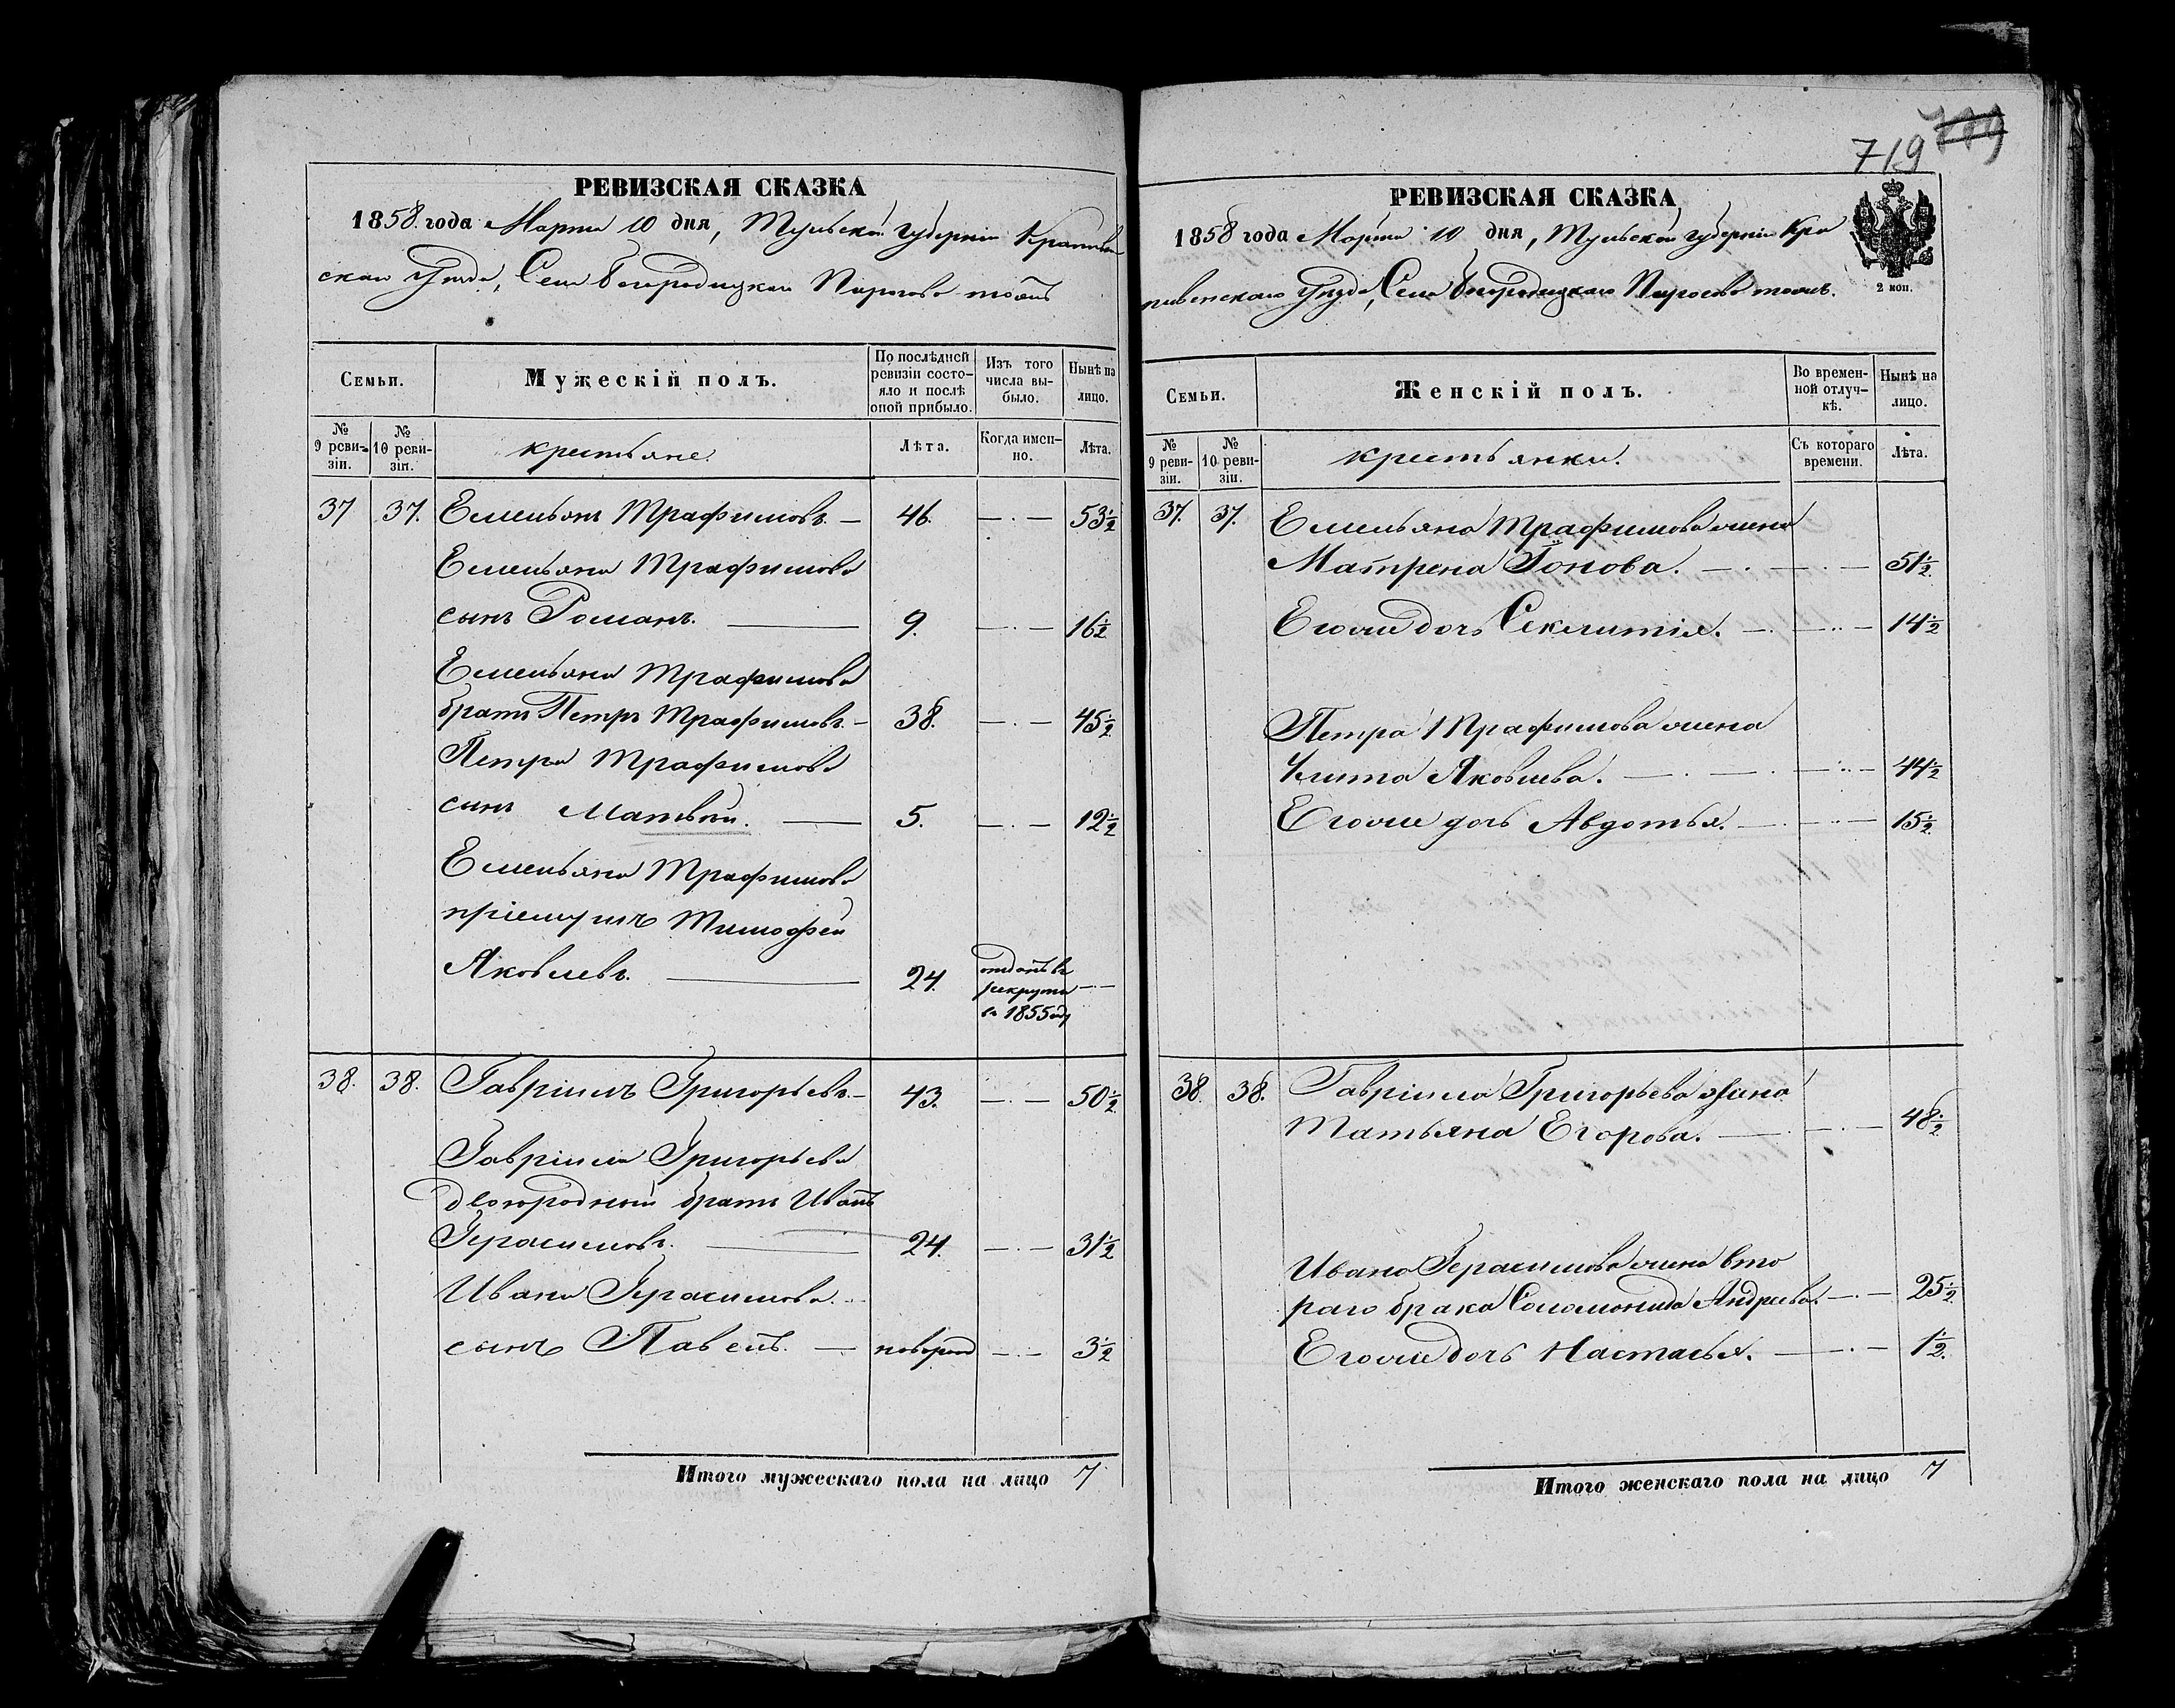 719
РЕВИЗСКАЯ СКАЗКА
1858 года Марта 10 дня, Тульской губерніи Крапивен
скаго уезда, Села Богородицкаго Пирогово тожъ
Семьи.
Мужескій полъ.
По послѣдней ревизіи состо-
яло и послѣ
оной прибыло.
Изъ того
числа вы-
было.
Нынѣ на
лицо.
№
9 реви-
зіи.
№
10 реви-
зіи.
крестьяне.
Лѣта.
Когда имен-
но.
Лѣта.
37 37. Емельянъ Трафимовъ. 46. 53 1/2
Емельяна Трафимова
сынъ Романъ. 9. 16 1/2
Емельяна Трафимова
братъ Петръ Трафимовъ. 38. 45 1/2
Петра Трафимова
сынъ Матвѣй. 5. 12 1/2
Емельяна Трафимова
пріемышъ Тимофей
Яковлевъ. 24. отданъ въ
рекруты
въ 1855 году
38. 38. Гавріилъ Григорьевъ. 43. 50 1/2
Гавріила Григорьева
двоюродный братъ Иванъ
Герасимовъ. 24. 31 1/2
Ивана Герасимова
сынъ Павелъ. новорож 3 1/2
Итого мужескаго пола на лицо 7
РЕВИЗСКАЯ СКАЗКА
1858 года Марта 10 дня, Тульской губерніи Кра
пивенскаго уезда, Села Богородицкаго Пирогово тожъ.
2 коп.
Семьи.
Женскій полъ.
Во времен-
ной отлуч-
кѣ.
Нынѣ на
лицо.
№
9 реви-
зіи.
№
10 реви-
зіи.
крестьянки.
Съ котораго
времени.
Лѣта.
37. 37. Емельяна Трафимова жена
Матрена 51 1/2
Егоже дочь 14 1/2
Петра Трафимова жена
Улита Яковлева. 44 1/2
Егоже дочь Авдотья. 15 1/2
38. 38. Гавріила Григорьева жена
Татьяна Егорова. 48 1/2
Ивана Герасимова жена вто
раго брака Соломонида Андреева. 25 1/2
Егоже дочь Настасья. 1 1/2.
Итого женскаго пола на лицо 7